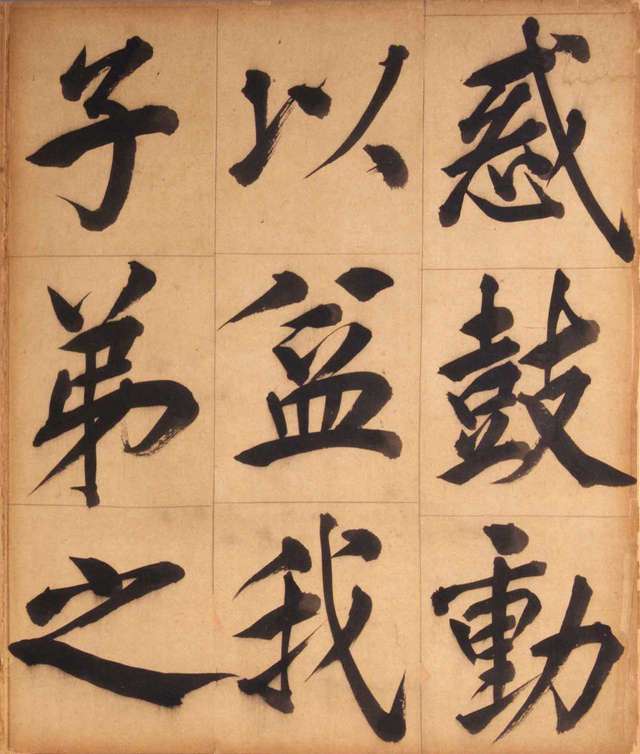 感鼓動
以益我
子弟之